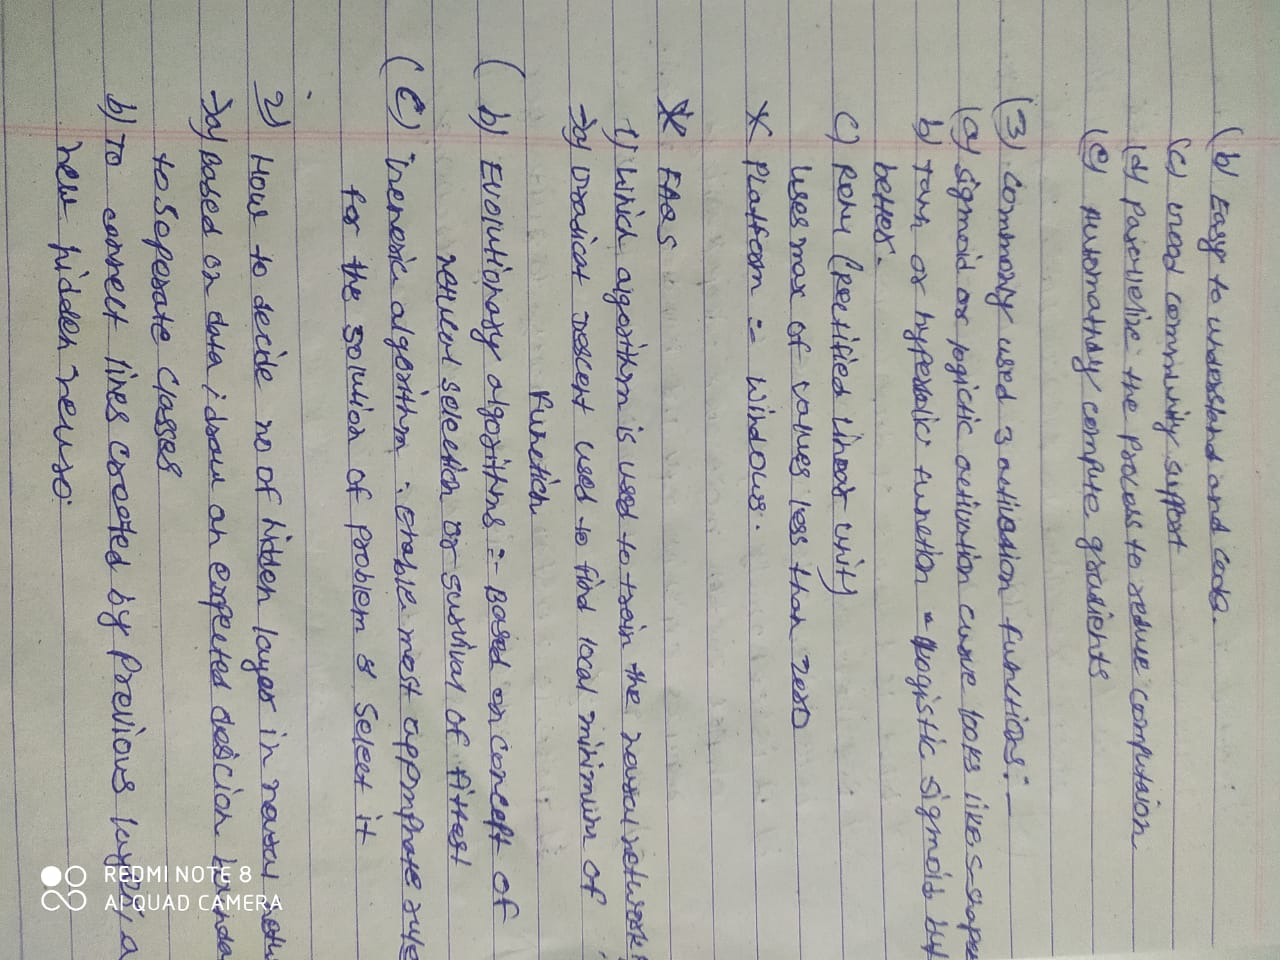 (b) Easy to understand and code.
(c) Good community support
(d) Parallelize the Process to reduce computaion
(e) Automathdy compute gradients
(3) Commonly used 3 activation functions:-
(a) sigmoid or logictic activation curve looks like s-shape
b) Tanh or hyperbolic function - logistic sigmoid but
better.
c) Relu (Rectified Linear Unit)
Uses max of values less than zero
* Platform :- Windows.
* FAQs
1) Which algorithm is used to train the neural network?
→a) Gradicat Descent used to find local minimum of
function
(b) Evolutionary algorithms :- Based on concept of
netural selection or survival of fittest
(C) Generic algorithm : Enable most appropriate rule
for the solution of problem & Select it
2) How to decide no of hidden layer in neural netw
→a) Based on data , draw an expected desicion bounda
to Seperate Classes
b) To connect lines created by Previous layer, a
new hidden neuro.
REDMI NOTE 8
AI QUAD CAMERA